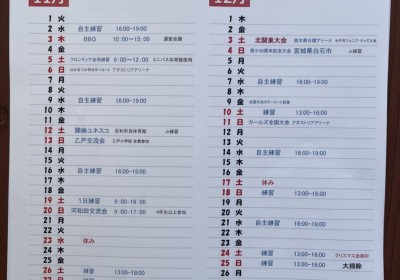 11月
1 火
2 水 自主練習 16:00~19:00
3 木 BBQ 10:00~15:00 運営会議
4 金
5 土 フロンティア合同練習 9:00~12:00 ミニバス体育館使用
6 日 アダストリアアリーナ
7 月
8 火
9 水 自主練習 16:00~19:00
10 木
11 金
12 土 開備ユネスコ 足利市民体育館 Jr練習
13 日 乙戸交流会 乙戸小学校 全員参加
14 月
15 火
16 水 自主練習 16:00~19:00
17 木
18 金
19 土 1日練習 9:00~16:00
20 日 河和田交流会 9:00~17:00 4年生以上参加
21 月
22 火
23 水 休み
24 木
25 金
26 土 練習
12月
1 木
2 金
3 土 北関東大会 栃木県日環アリーナ 水戸市ジュニア・キッズ大会
4 日 宮城県白石市 Jr練習
5 月
6 火
7 水 自主練習 16:00~19:00
8 木
9 金
10 土 練習 13:00~16:00
11 日 ガールズ全国大会 アダストリアアリーナ
12 月
13 火
14 水 自主練習 16:00~19:00
15 木
16 金
17 土 休み
18 日 練習 13:00~16:00
19 月
20 火
21 水 自主練習 16:00~19:00
22 木
23 金
24 土 練習 13:00~16:00 クリスマス会検討
25 日 練習 13:00~16:00 大掃除
26 月